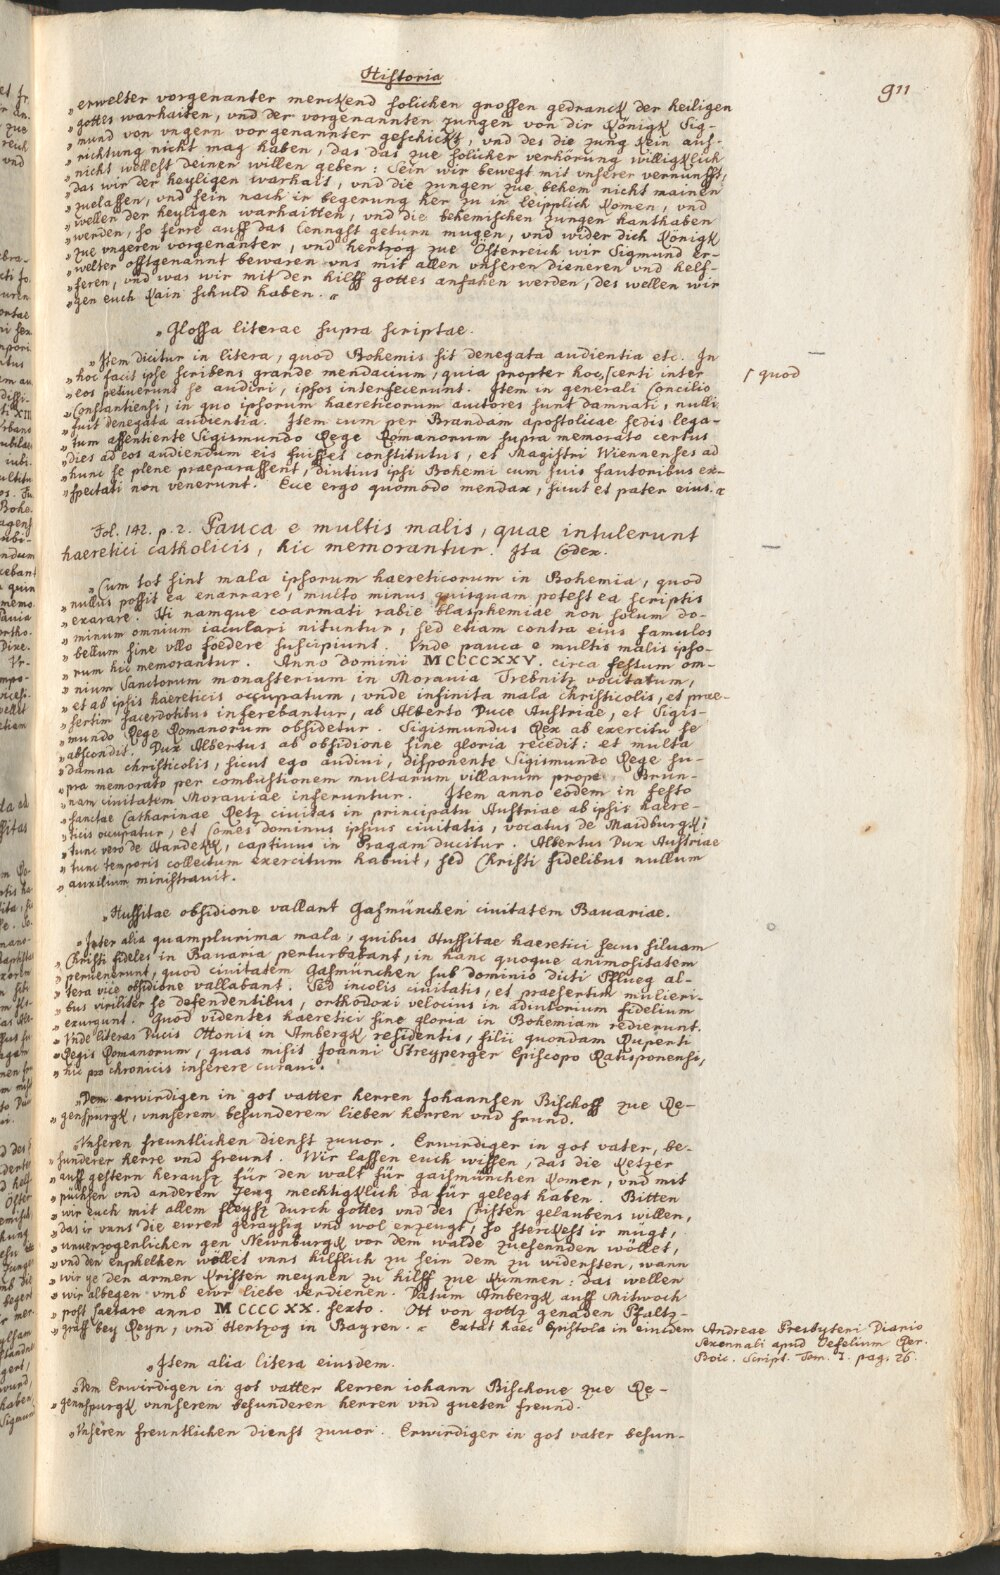 Historia
911
„erwelter vorgenanter merckend solichen grossen gedranck der heiligen
„gottes warhaiten, vnd der vorgenannten zungen von dir Königk Sig-
„mund von vngern vorgenannter geschickt, vnd des die zung kein auf-
„richtung nicht mag haben, das das zue solicher verhörung willigklich
„nicht wellest deinen willen geben: Sein wir bewegt mit vnserer vernunfft,
„das wir der heyligen warhait, vnd die zungen zue behem nicht mainen
„zuelassen, vnd sein nach ir begerung her zu in leipplich komen, vnd
„wellen der heyligen warhaitten, vnd die behemischen zungen hanthaben
„werden, so ferre auff das lenngst geturn mugen, vnd wider dich Königk
„zue vngeren vorgenanter, vnd hertzog zue Österreich wir Sigmund er-
„welter offtgenannt bewaren vns mit allen vnseren dieneren vnd helf-
„feren, vnd was wir mit der hilff gottes anfahen werden, des wellen wir
„gen euch kain schuld haben. “
„Glossa literae supra scriptae.
„Item dicitur in litera, quod Bohemis sit denegata audientia etc. In
„hoc facit ipse scribens grande mendacium, quia propter hoc, certi inter
⌈ quod
„eos petiuerunt se audiri, ipsos interfecerunt. Item in generali Concilio
„Constantiensi, in quo ipsorum haereticorum auctores sunt damnati, nulli
„fuit denegata audientia. Item cum per Brandam apostolicae sedis lega-
„tum assentiente Sigismundo Rege Romanorum supra memorato certus
„dies ad eos audiendum eis fuisset constitutus, et Magistri Wiennenses ad
„hunc se plene praeparassent, diutius ipsi Bohemi cum suis fautoribus ex-
„spectati non venerunt. Ecce ergo quomodo mendax, sicut et pater eius. “
Fol. 142. p. 2. Pauca e multis malis, quae intulerunt
haeretici catholicis, hic memorantur. Ita Codex.
„Cum tot sint mala ipsorum haereticorum in Bohemia, quod
„nullus possit ea enarrare, multo minus quisquam potest ea scriptis
„exarare. Hi namque coarmati rabie blasphemiae non solum do-
„minum omnium iaculari nituntur, sed etiam contra eius famulos
„bellum sine vllo foedere suscipiunt. Vnde pauca e multis malis ipso-
„rum hic memorantur. Anno domini MCCCCXXV. circa festum om-
„nium Sanctorum monasterium in Morauia Trebnitz vocitatum,
„et ab ipsis haereticis occupatum, vnde infinita mala christicolis, et prae-
„sertim sacerdotibus inferebantur, ab Alberto Duce Austriae, et Sigis-
„mundo Rege Romanorum obsidetur. Sigismundus Rex ab exercitu se
„abscondit. Dux Albertus ab obsidione sine gloria recedit: et multa
„damna christicolis, sicut ego audiui, disponente Sigismundo Rege su-
„pra memorato per combustionem multarum villarum prope Brun-
„nam ciuitatem Morauiae inferuntur. Item anno eodem in festo
„sanctae Catharinae Retz ciuitas in principatu Austriae ab ipsis haere-
„ticis occupatur, et Comes dominus ipsius ciuitatis, vocatus de Maidburgk,
„tunc vero de Handekk, captiuus in Pragam ducitur. Albertus Dux Austriae
„tunc temporis collectum exercitum habuit, sed Christi fidelibus nullum
„auxilium ministrauit.
„Hussitae obsidione vallant Gasmünchen ciuitatem Bauariae.
„Inter alia quamplurima mala, quibus Hussitae haeretici secus siluam
„Christi fideles in Bauaria perturbabant, in hanc quoque animositatem
„peruenerunt, quod ciuitatem Gasmünchen sub dominio dicti Pflueg al-
„tera vice obsidione vallabant. Sed incolis ciuitatis, et praesertim mulieri-
„bus viriliter se defendentibus, orthodoxi velocius in adiutorium fidelium
„exurgunt. Quod videntes haeretici sine gloria in Bohemiam redierunt.
„Vnde literas Ducis Ottonis in Ambergk residentis, filii quondam Ruperti
„Regis Romanorum, quas misit Joanni Streyperger Episcopo Ratisponensi,
„hic pro chronicis inserere curaui.
„Dem erwirdigen in got vatter herren Johannsen Bischoff zue Re-
„genspurgk, vnnserem besunderem lieben herren vnd freund.
„Vnseren freuntlichen dienst zuuor. Erwirdiger in got vater, be-
„sunderer herre vnd freunt. Wir lassen euch wissen, das die Ketzer
„auff gestern herausz für den walt für gaismünchen komen, vnd mit
„puchsen vnd anderem Zeug mechtigklich da für gelegt haben. Bitten
„wir euch mit allem fleysz durch gottes vnd des Cristen gelaubens willen,
„das ir vnns die ewren geraysig vnd wol erzeugt, so sterckest ir mügt,
„vnuerzogenlichen gen Newnburgk vor dem walde zuesennden wöllet,
„vnd den enphelhen wöllet vnns hilflich zu sein dem zu widersten, wann
„wir ye den armen Kristen meynen zu hilff zue kummen: das wellen
„wir albegen vmb ewr liebe verdienen. Datum Ambergk auff Mitwoch
„post laetare anno MCCCCXX. sexto. Ott von gottz genaden Pfaltz-
„graff bey Reyn, vnd Hertzog in Bayren. “ Extat haec Epistola in eiusdem Andreae Presbyteri Diario
Sexennali apud Oefelium Rer.
Boic. Script. Tom. I. pag. 26.
„Item alia litera eiusdem.
„Dem Erwirdigen in got vatter herren iohann Bischoue zue Re-
„gennspurgk vnnserem besunderen herren vnd gueten freund.
„Vnseren freuntlichen dienst zuuor. Erwirdiger in got vater besun-